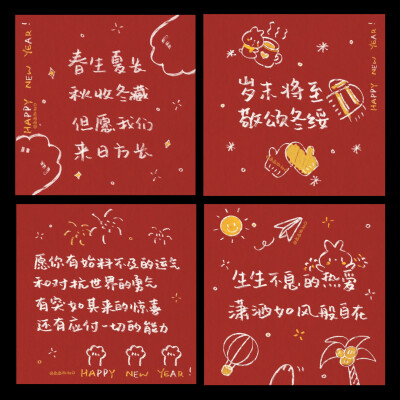 HAPPY NEW YEAR!
春生夏长
秋收冬藏
但愿我们
来日方长
HAPPY NEW YEAR!
岁末将至
敬颂冬绥
愿你有始料不及的运气
和对抗世界的勇气
有突如其来的惊喜
还有应付一切的能力
HAPPY NEW YEAR!
生生不息的热爱
潇洒如风般自在